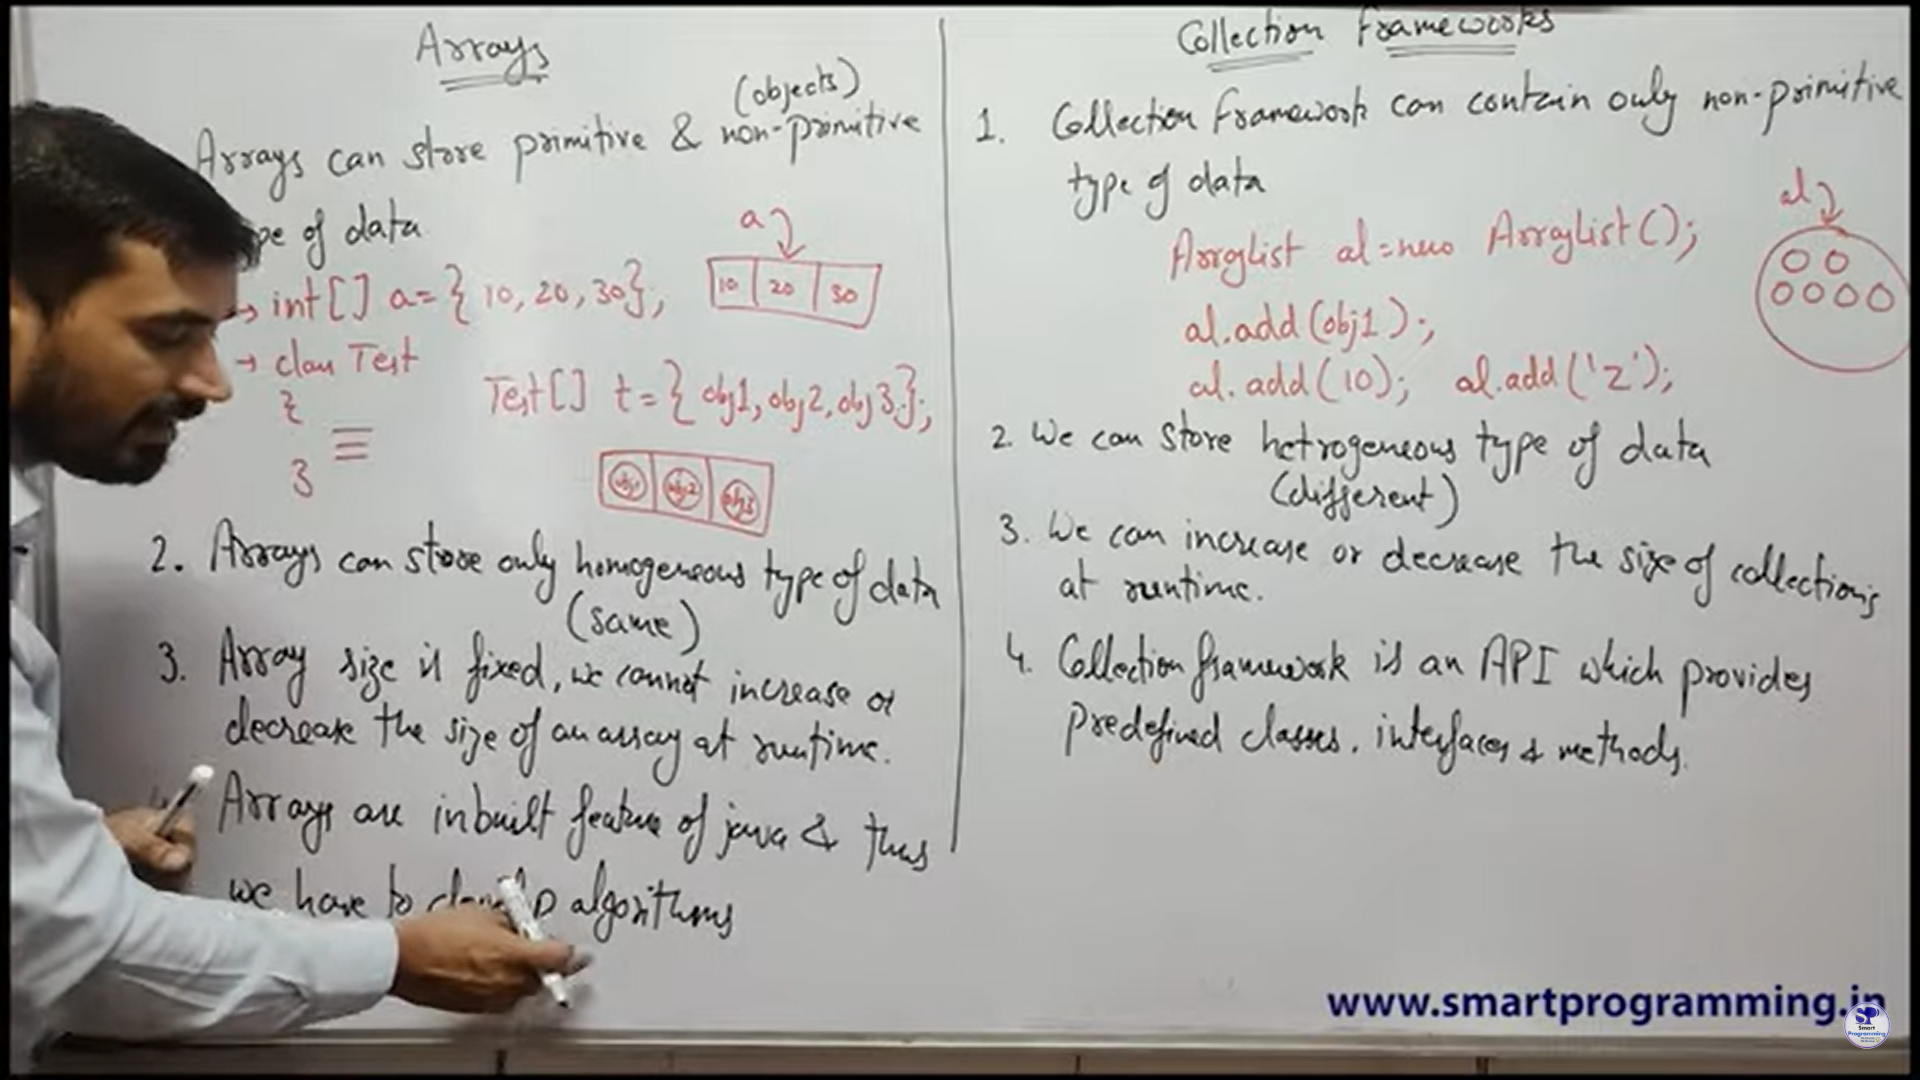 Arrays
(objects)
Arrays can store primitive & non-primitive
pe of data
a
→ int[] a={10,20,30};
10 20 30
→ class Test
{
}
Test[] t={obj1,obj2,obj3};
obj1 obj2 obj3
2. Arrays can store only homogeneous type of data
(same)
3. Array size is fixed, we cannot increase or
decrease the size of an array at runtime.
Arrays are inbuilt feature of java & thus
we have to algorithms
Collection Frameworks
1. Collection Framework can contain only non-primitive
type of data
al
ArrayList al=new ArrayList();
al.add(obj1);
al.add(10); al.add('z');
2. We can store hetrogeneous type of data
(different)
3. We can increase or decrease the size of collections
at runtime.
4. Collection framework is an API which provides
predefined classes, interfaces & methods.
www.smartprogramming.in
SP
Smart
Programming